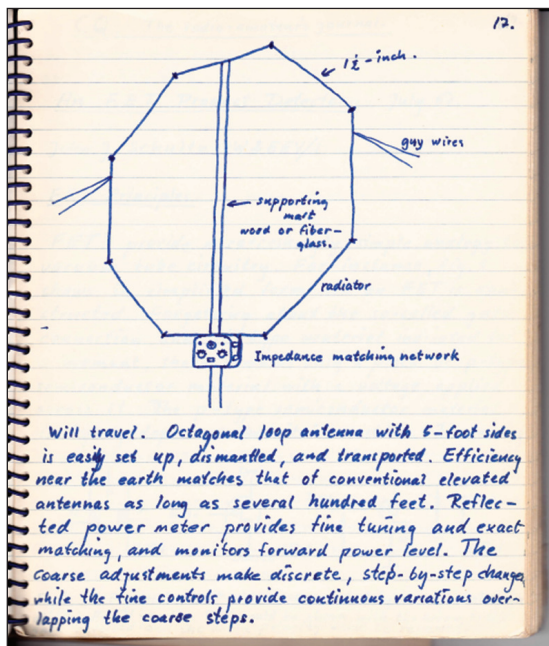 17.
1½-inch.
guy wires
supporting
mast
wood or fiber-
glass.
radiator
Impedance matching network
Will travel. Octagonal loop antenna with 5-foot sides
is easily set up, dismantled, and transported. Efficiency
near the earth matches that of conventional elevated
antennas as long as several hundred feet. Reflec-
ted power meter provides fine tuning and exact
matching, and monitors forward power level. The
coarse adjustments make discrete, step-by-step changes
while the fine controls provide continuous variations over-
lapping the coarse steps.